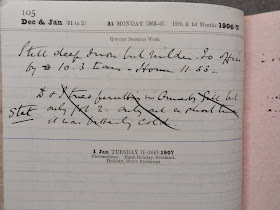 105
Dec & Jan [31 to 2] 31 MONDAY [365-0]. 12th & 1st Months 1906-7
Quarter Sessions Week
Still deep snow but milder. To
by 10.3 train - Home 11.55 -
D & I tried ferretting in Ormesby but
Stet only got 2 only out a short time
it was bitterly cold.
1 Jan TUESDAY [1-364] 1907
Circumcision. Bank Holiday, Scotland.
Holiday, Stock Exchanges